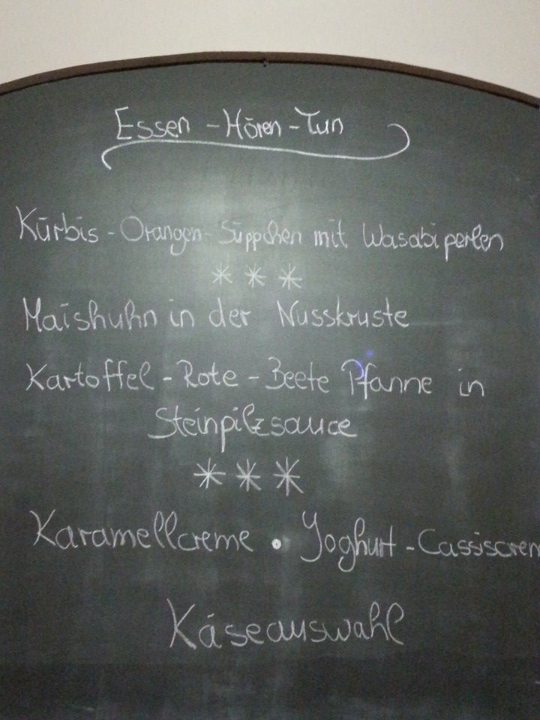 Essen - Hören - Tun
Kürbis - Orangen - Süppchen mit Wasabiperlen
* * *
Maishuhn in der Nusskruste
Kartoffel - Rote - Beete Pfanne in
Steinpilzsauce
* * *
Karamellcreme • Joghurt - Cassiscrem
Käseauswahl